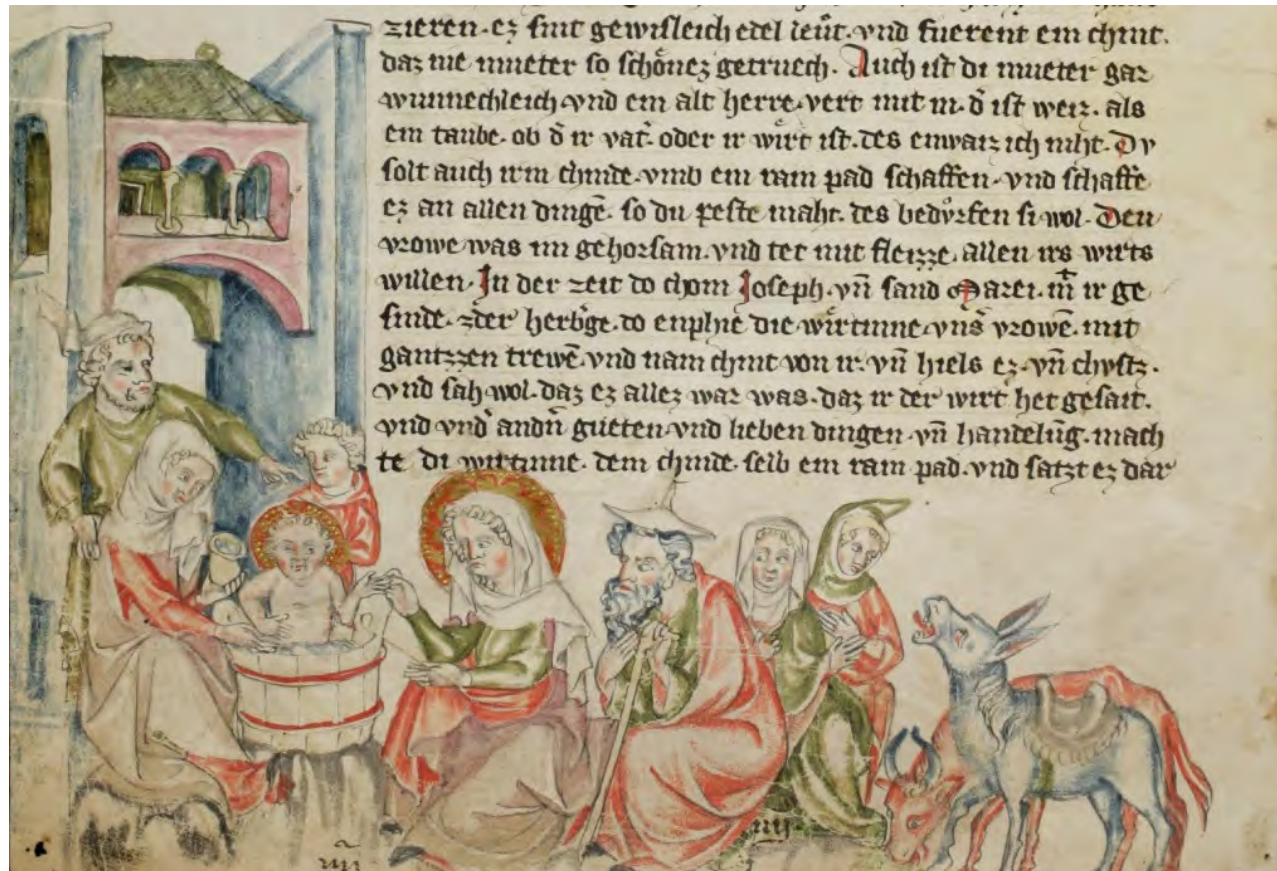 zieren. ez sint gewisleich edel leut. vnd fuerent ein chint.
daz nie mueter so schönez getruech. Auch ist di mueter gar
wunnechleich vnd ein alt herre vert mit in. d ist weiz. als
ein taube. ob d ir vat. oder ir wirt ist. des enwaiz ich niht. Dv
solt auch irm chinde. vmb ein rain pad schaffen. vnd schaffe
ez an allen dingē. so du peste maht. des bedurfen si wol. Deu
vrowe was im gehorsam. vnd tet mit fleizze. allen irs wirts
willen. In der zeit do chom Joseph. vn̄ sand Marei. mit ir ge
sinde. zder herbge. do enphie die wirtinne vns vrowē. mit
gantzzen trewē. vnd nam chint von ir. vn̄ hiels ez. vn̄ chvstz.
vnd sah wol. daz ez allez war was. daz ir der wirt het gesait.
vnd vnd andn güeten vnd lieben dingen. vn̄ handelūg. mach
te di wirtinne. dem chinde. selb ein rain pad. vnd satzt ez dar